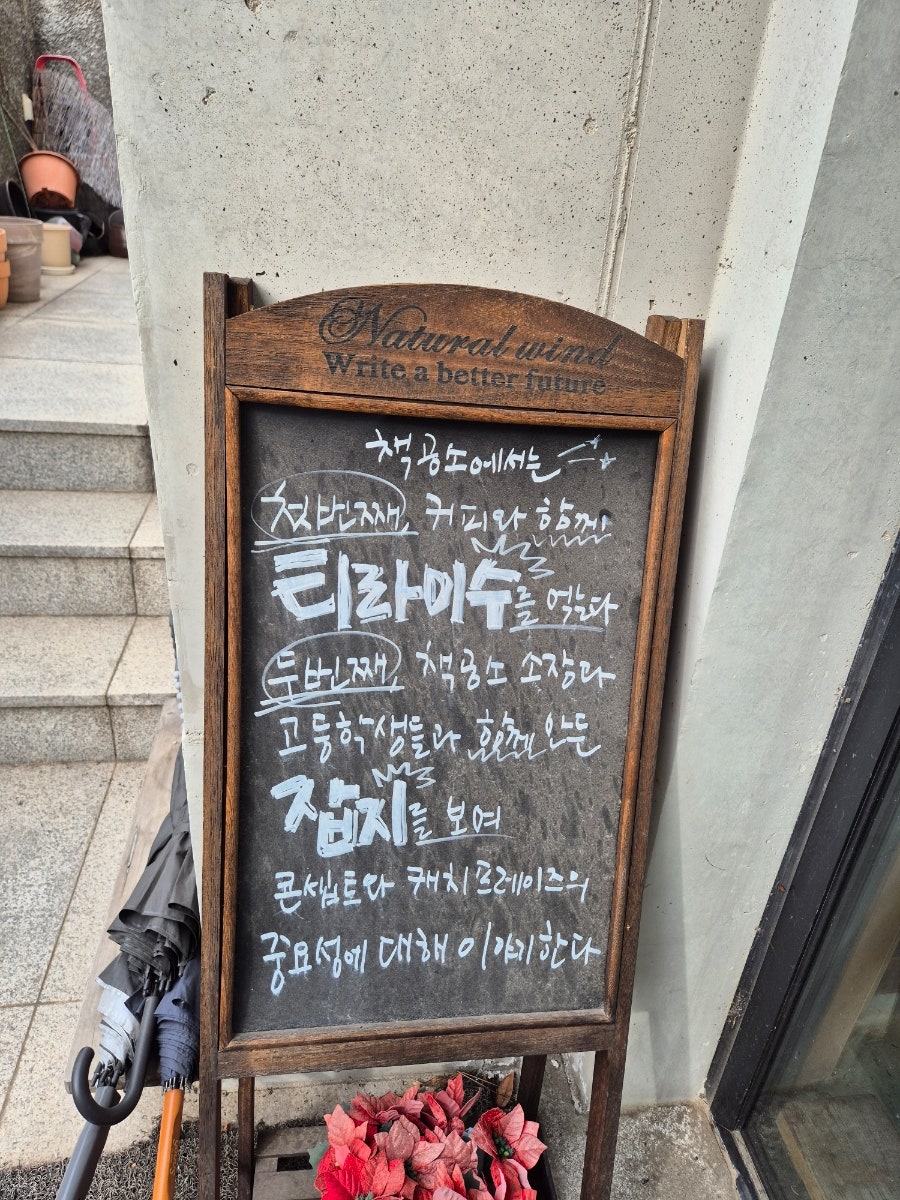 Natural wind
Write a better future
책공소에서는
첫번째 커피와 함께
티라미수를 먹는다
두번째 책공소 소장과
고등학생들과 함께 만든
잡지를 보며
콘셉트와 캐치프레이즈의
중요성에 대해 이야기한다